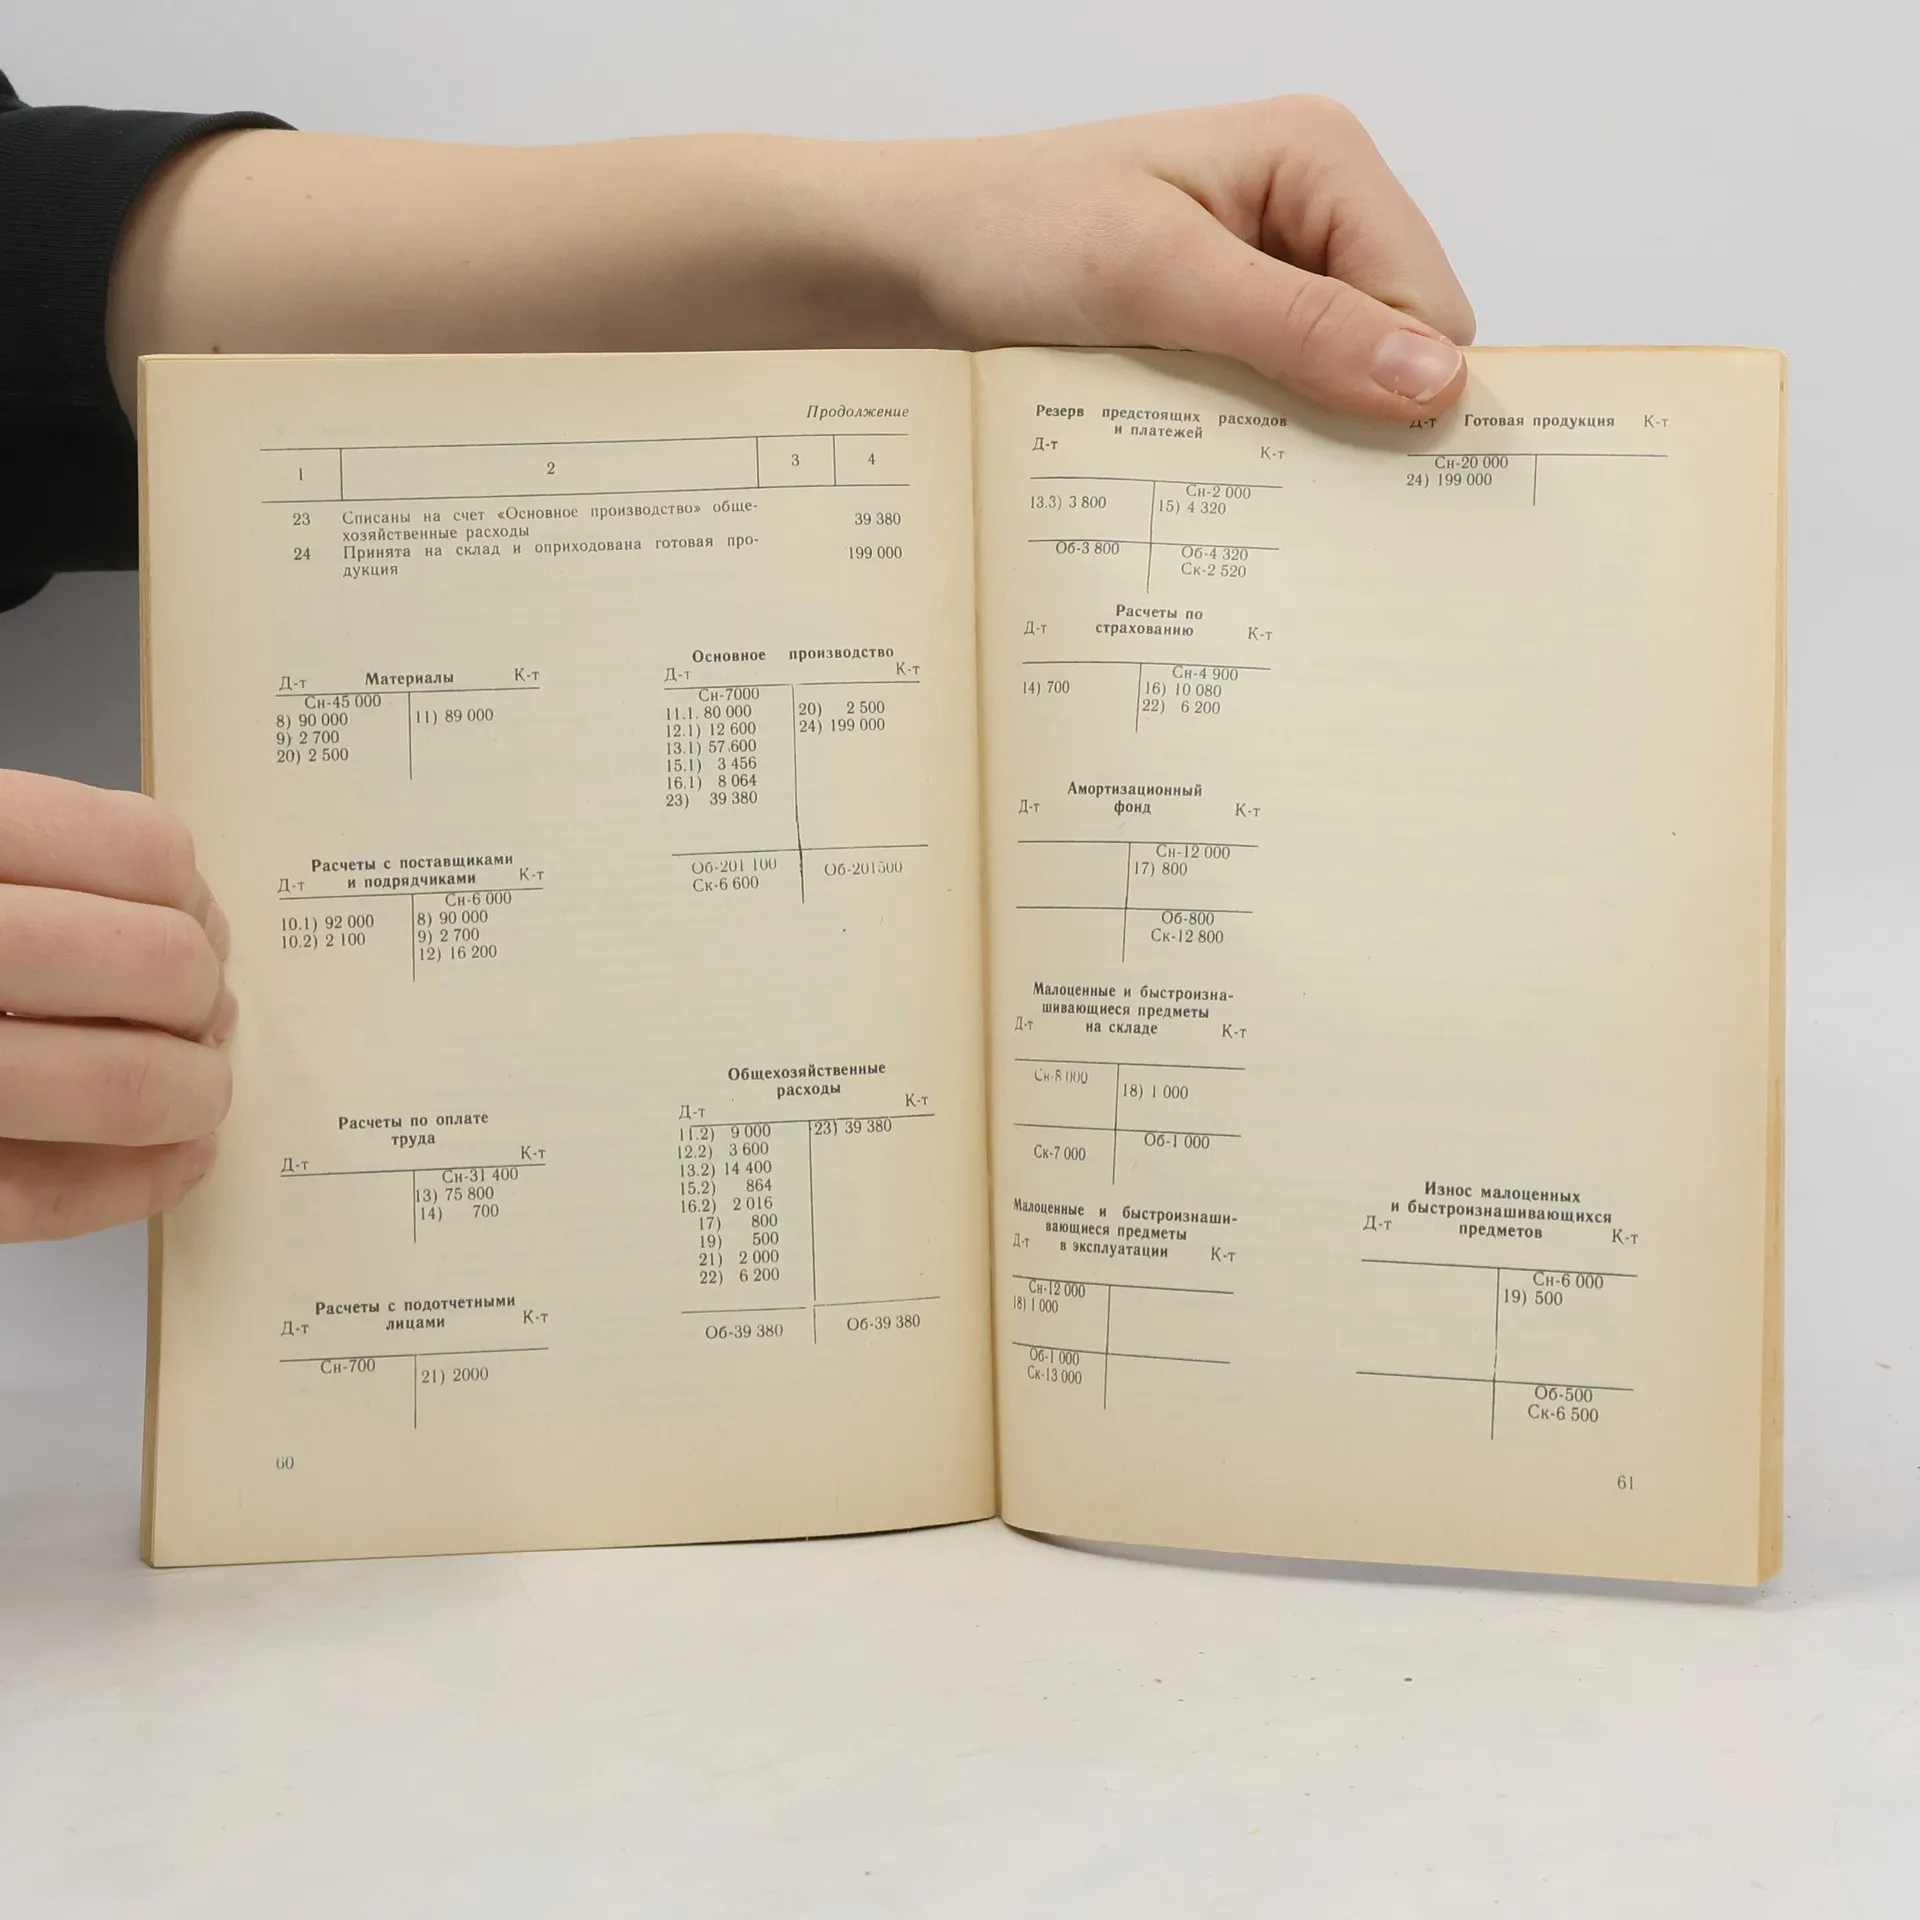 Продолжение
1 2 3 4
23 Списаны на счет «Основное производство» обще-
хозяйственные расходы 39 380
24 Принята на склад и оприходована готовая про-
дукция 199 000
Д-т Материалы К-т
Сн-45 000
8) 90 000 11) 89 000
9) 2 700
20) 2 500
Расчеты с поставщиками
Д-т и подрядчиками К-т
Сн-6 000
10.1) 92 000 8) 90 000
10.2) 2 100 9) 2 700
12) 16 200
Расчеты по оплате
труда
Д-т К-т
Сн-31 400
13) 75 800
14) 700
Расчеты с подотчетными
Д-т лицами К-т
Сн-700
21) 2000
60
Основное производство
Д-т К-т
Сн-7000
11.1. 80 000 20) 2 500
12.1) 12 600 24) 199 000
13.1) 57.600
15.1) 3 456
16.1) 8 064
23) 39 380
Об-201 100 Об-201500
Ск-6 600
Общехозяйственные
расходы
Д-т К-т
11.2) 9 000 23) 39 380
12.2) 3 600
13.2) 14 400
15.2) 864
16.2) 2 016
17) 800
19) 500
21) 2 000
22) 6 200
Об-39 380 Об-39 380
Резерв предстоящих расходов
и платежей
Д-т К-т
Сн-2 000
13.3) 3 800 15) 4 320
Об-3 800 Об-4 320
Ск-2 520
Расчеты по
Д-т страхованию К-т
Сн-4 900
14) 700 16) 10 080
22) 6 200
Амортизационный
Д-т фонд К-т
Сн-12 000
17) 800
Об-800
Ск-12 800
Малоценные и быстроизна-
шивающиеся предметы
Д-т на складе К-т
Сн-8 000
18) 1 000
Об-1 000
Ск-7 000
Малоценные и быстроизнаши-
вающиеся предметы
Д-т в эксплуатации К-т
Сн-12 000
18) 1 000
Об-1 000
Ск-13 000
Д-т Готовая продукция К-т
Сн-20 000
24) 199 000
Износ малоценных
и быстроизнашивающихся
Д-т предметов К-т
Сн-6 000
19) 500
Об-500
Ск-6 500
61